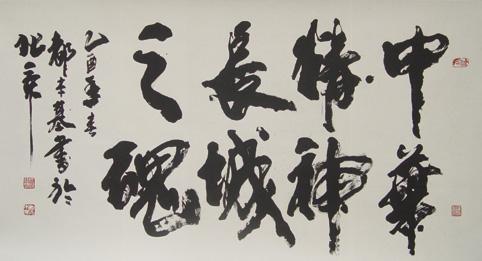 中華
精神
長城
之魂
乙酉年春
都本基書於
北京